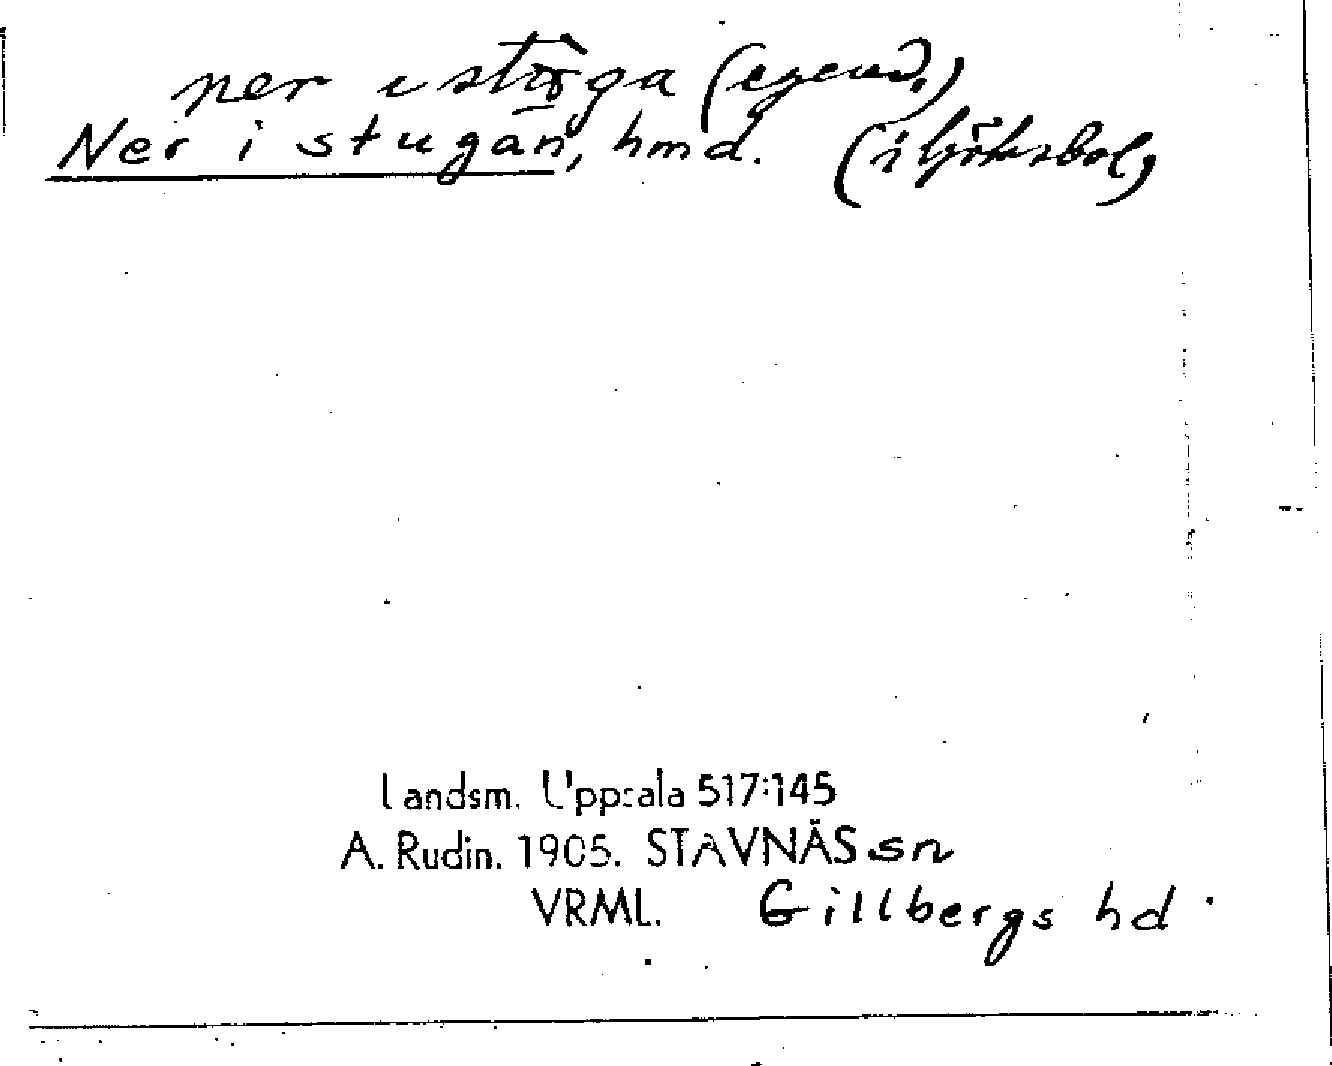 ner i stöga (egend.)
Ner i stugan, hmd. (i
Landsm. Uppsala 517:145
A. Rudin. 1905. STAVNÄS sn
VRML. Gillbergs hd